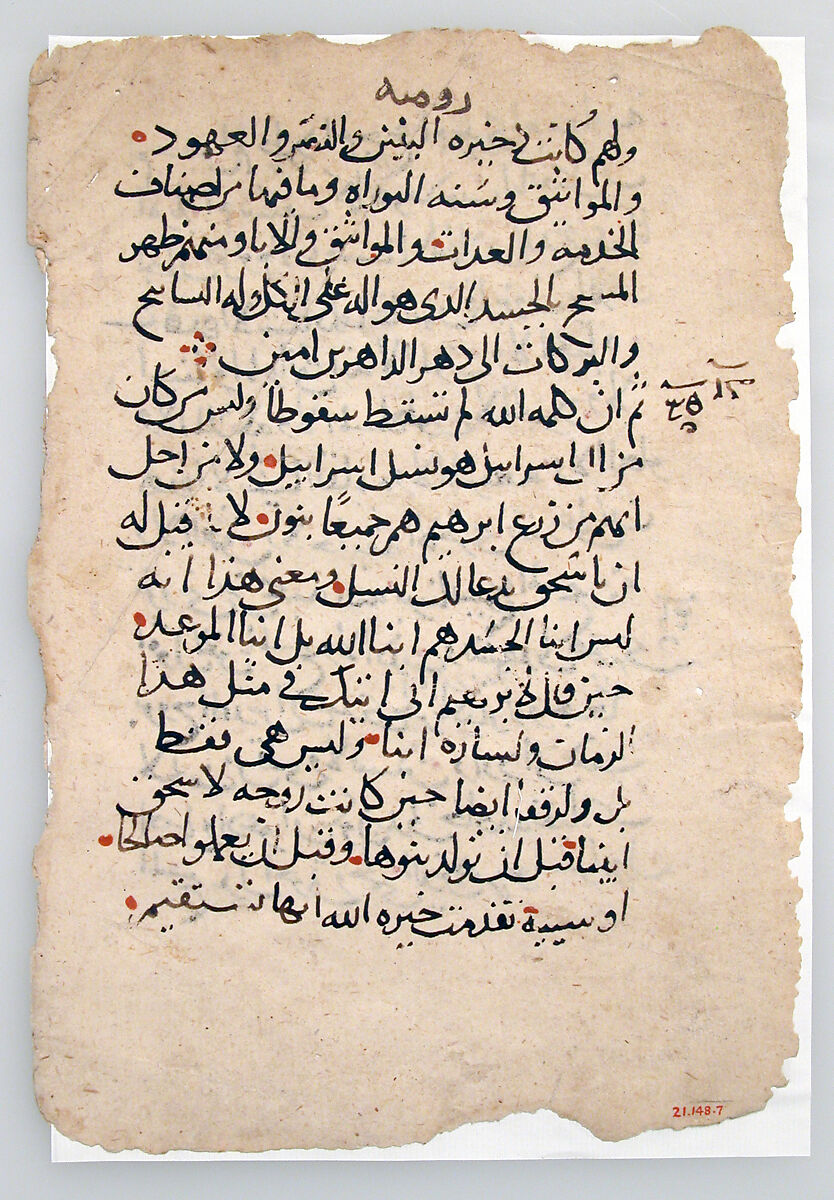 روميه
ولهم كانت خيره البنين والذمر والعهود
والمواثيق وسنه التوراه وما فيها من اصناف
الخدمه والعدات والمواثيق والابا ومنهم ظهر
المسيح بالجسد الدى هو اله على الكل له التسابيح
والبركات الى دهر الداهرين امين
ثم ان كلمه الله لم تسقط سقوطاً وليس من كان
من ال اسراييل هو نسل اسراييل ولا من اجل
انهم من زرع ابرهيم هم جميعًا بنون لا قيل له
ان باسحق يدعا لك النسل ومعنى هذا انه
ليس ابنا الجسد هم ابنا الله بل ابنا الموعد
حين قال لابرهيم انى اتيك في مثل هذا
الزمان ولساره ابنا وليس هى فقط
بل ولرفقا ايضا حين كانت زوجه لاسحق
ابينا قبل ان تولد بنوها وقبل ان يعملو اصالحا
او سيية تقدمت خيره الله انها تستقيم
21.148.7